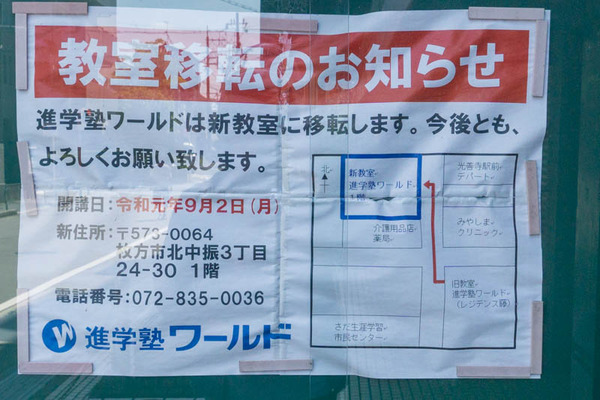 教室移転のお知らせ
進学塾ワールドは新教室に移転します。今後とも、
よろしくお願い致します。
開講日：令和元年9月2日（月）
新住所：〒573-0064
枚方市北中振3丁目
24-30 1階
電話番号：072-835-0036
W 進学塾ワールド
北
新教室
進学塾ワールド
1階
光善寺駅前
デパート
介護用品店
薬局
みやしま
クリニック
旧教室
進学塾ワールド
（レジデンス藤）
さだ生涯学習
市民センター